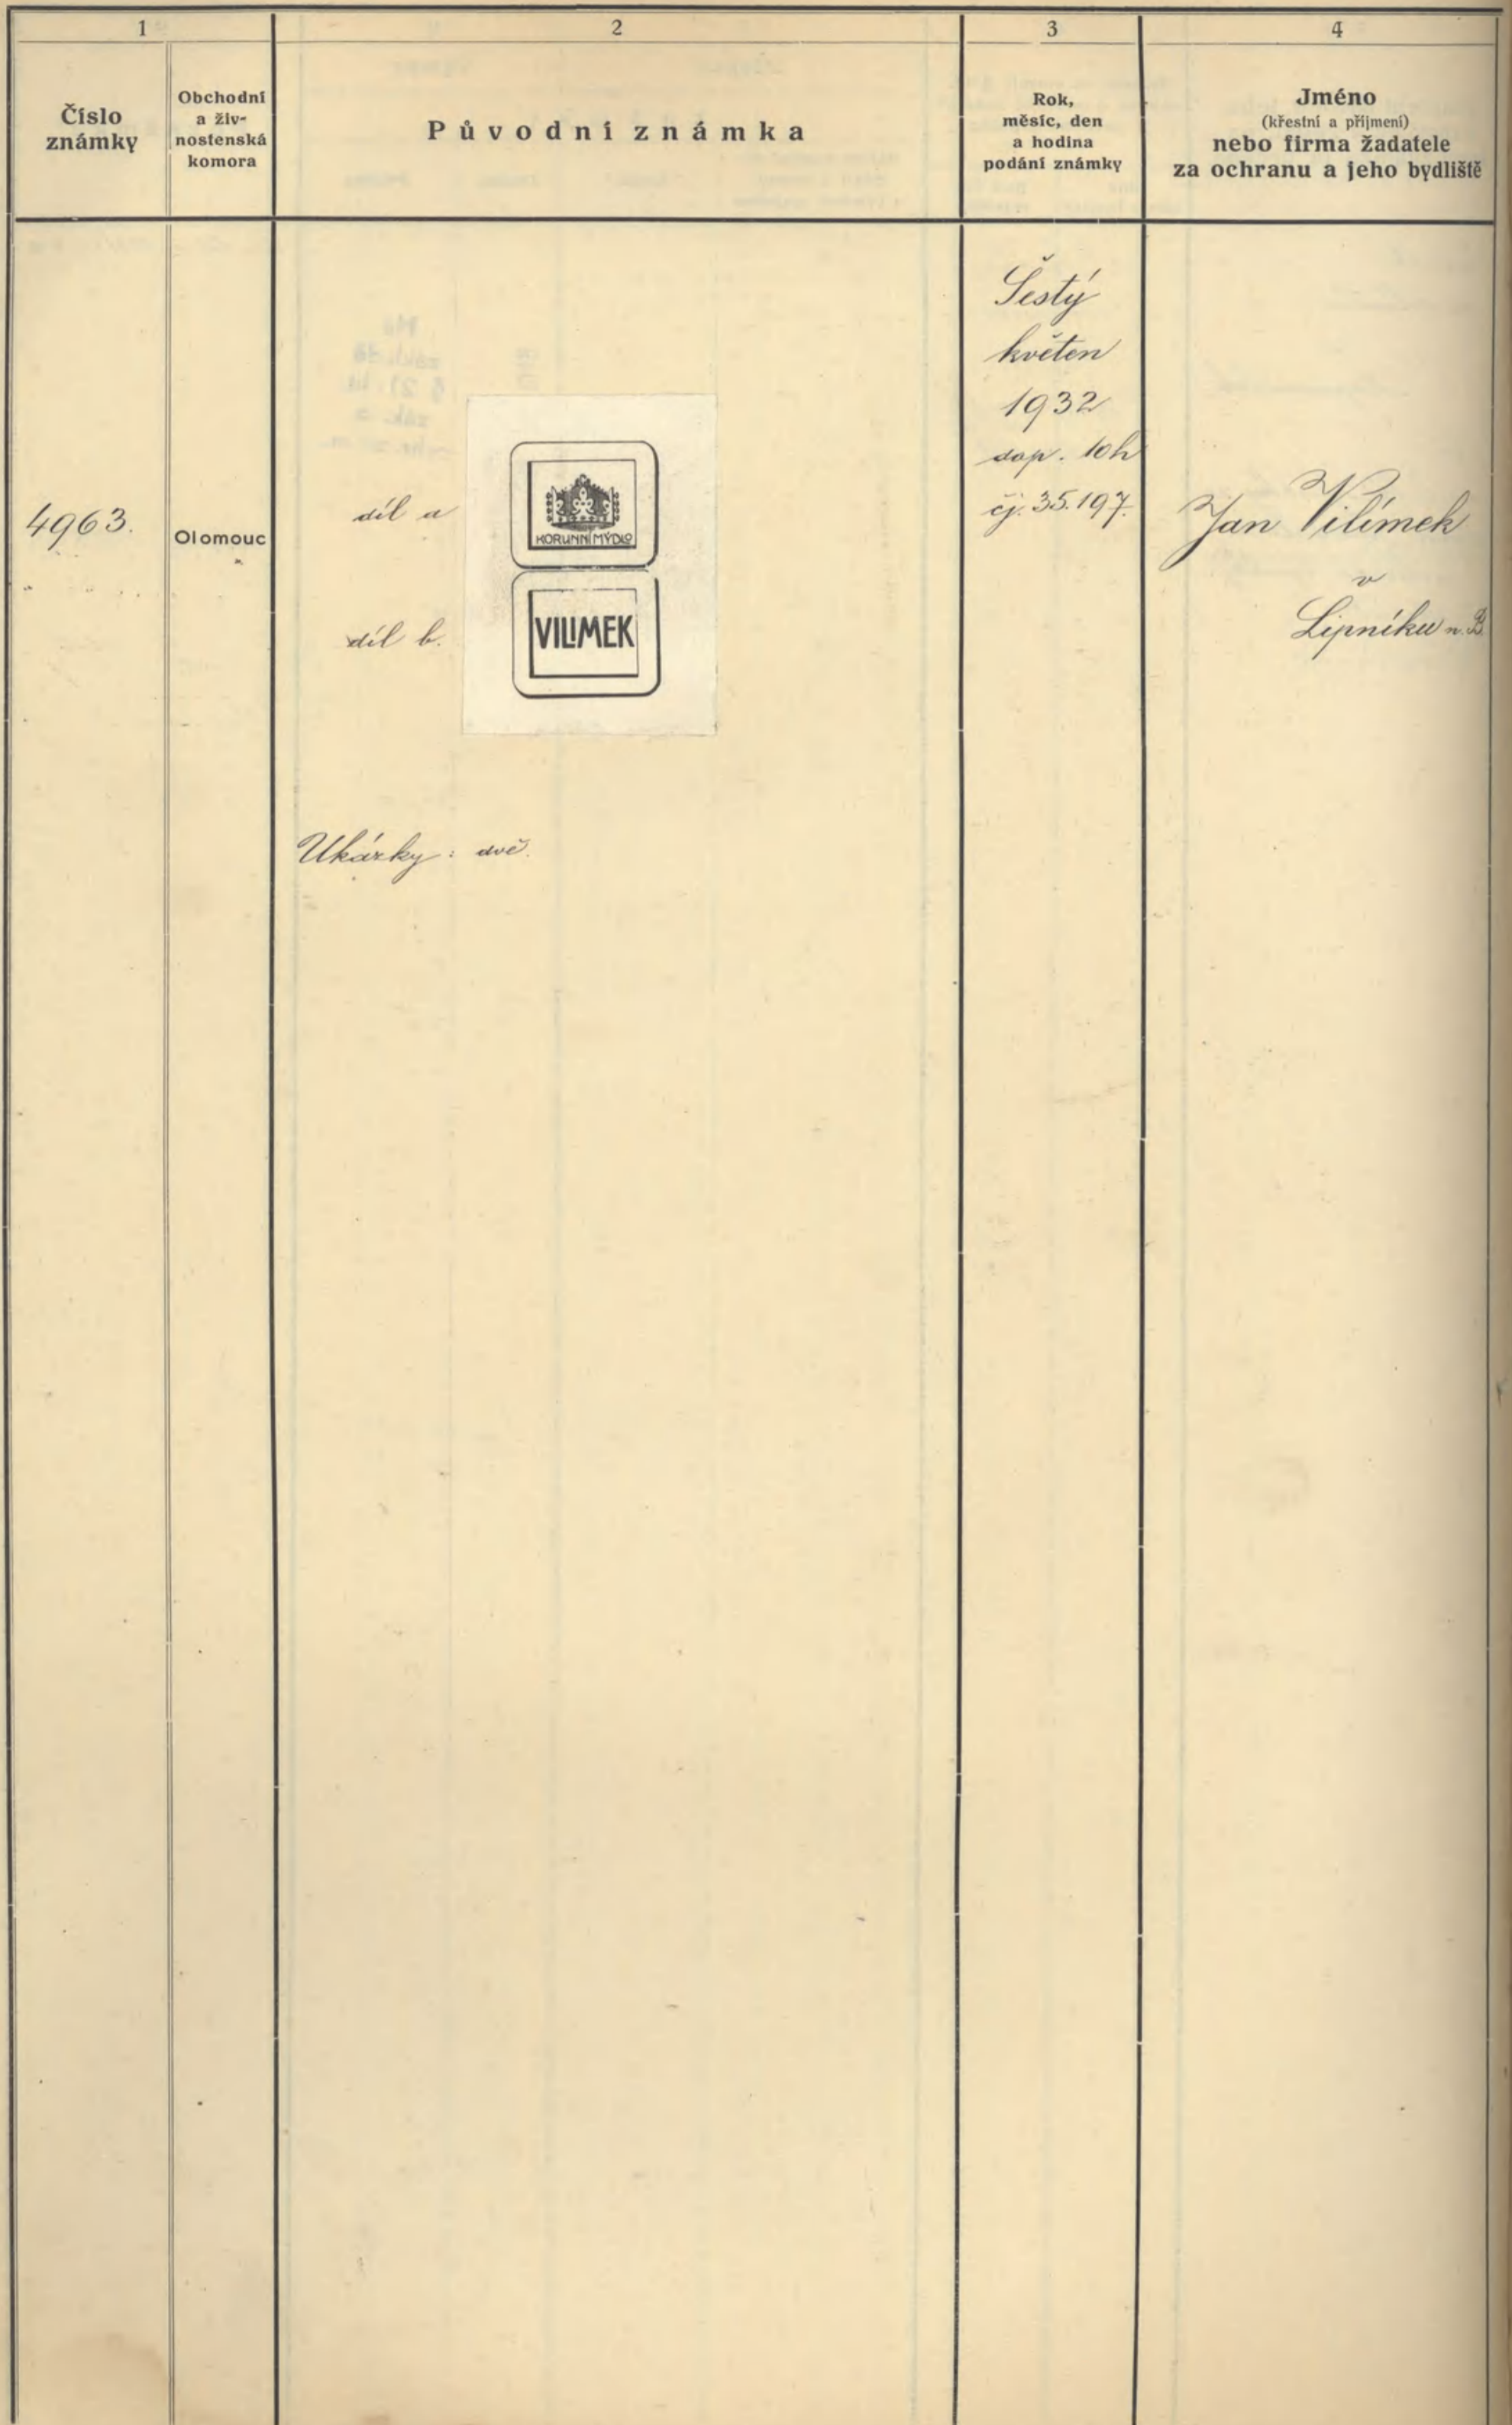 1
2
3
4
Číslo
známky
Obchodní
a živ-
nostenská
komora
Původní známka
Rok,
měsíc, den
a hodina
podání známky
Jméno
(křestní a příjmení)
nebo firma žadatele
za ochranu a jeho bydliště
4963.
Olomouc
díl a
KORUNNÍ MÝDLO
díl b.
VILÍMEK
Ukázky: dvě.
Šestý
květen
1932
dop. 10h
čj. 35.197.
Jan Vilímek
v
Lipníku n.B.